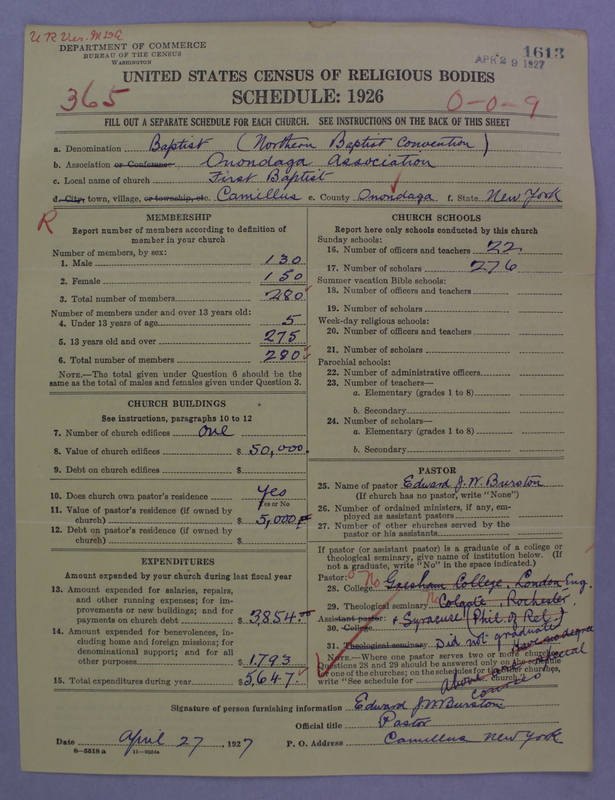 U.R. Ver. M.D.A.
DEPARTMENT OF COMMERCE
BUREAU OF THE CENSUS
WASHINGTON
1613
APR 29 1927
UNITED STATES CENSUS OF RELIGIOUS BODIES
365
SCHEDULE: 1926
0-0-9
FILL OUT A SEPARATE SCHEDULE FOR EACH CHURCH. SEE INSTRUCTIONS ON THE BACK OF THIS SHEET
a. Denomination Baptist (Northern Baptist Convention)
b. Association or Conference Onondaga Association
c. Local name of church First Baptist
d. City, town, village, or township, etc. Camillus e. County Onondaga f. State New York
R
MEMBERSHIP
Report number of members according to definition of
member in your church
Number of members, by sex:
1. Male 130
2. Female 150
3. Total number of members 280
Number of members under and over 13 years old:
4. Under 13 years of age 5
5. 13 years old and over 275
6. Total number of members 280
NOTE.—The total given under Question 6 should be
the same as the total of males and females given under Question 3.
CHURCH BUILDINGS
See instructions, paragraphs 10 to 12
7. Number of church edifices one
8. Value of church edifices $ 50,000.
9. Debt on church edifices $
10. Does church own pastor's residence Yes
Yes or No
11. Value of pastor's residence (if owned by
church) $ 5,000.00
12. Debt on pastor's residence (if owned by
church) $
EXPENDITURES
Amount expended by your church during last fiscal year
13. Amount expended for salaries, repairs,
and other running expenses; for im-
provements or new buildings; and for
payments on church debt $ 3854.00
14. Amount expended for benevolences, in-
cluding home and foreign missions; for
denominational support; and for all
other purposes $ 1793
15. Total expenditures during year $ 5,647.
CHURCH SCHOOLS
Report here only schools conducted by this church
Sunday schools:
16. Number of officers and teachers 22
17. Number of scholars 276
Summer vacation Bible schools:
18. Number of officers and teachers
19. Number of scholars
Week-day religious schools:
20. Number of officers and teachers
21. Number of scholars
Parochial schools:
22. Number of administrative officers
23. Number of teachers—
a. Elementary (grades 1 to 8)
b. Secondary
24. Number of scholars—
a. Elementary (grades 1 to 8)
b. Secondary
PASTOR
25. Name of pastor Edward J. W. Burston
(If church has no pastor, write "None")
26. Number of ordained ministers, if any, em-
ployed as assistant pastors
27. Number of other churches served by the
pastor or his assistants
If pastor (or assistant pastor) is a graduate of a college or
theological seminary, give name of institution below. (If
not a graduate, write "No" in the space indicated.)
Pastor:
28. College No Gresham College, London Eng.
29. Theological seminary No Colgate, Rochester.
Assistant pastor: + Syracuse (Phil. of Rel.)
30. College
31. Theological seminary Did not graduate
have no degree
NOTE.—Where one pastor serves two or more churches,
Questions 28 and 29 should be answered only on the schedule
for one of the churches; on the schedules for the other churches
write "See schedule for church."
above are special
courses
Signature of person furnishing information Edward J W Burston
Official title Pastor
Date April 27, 1927 P. O. Address Camillus New York
8-5518 a